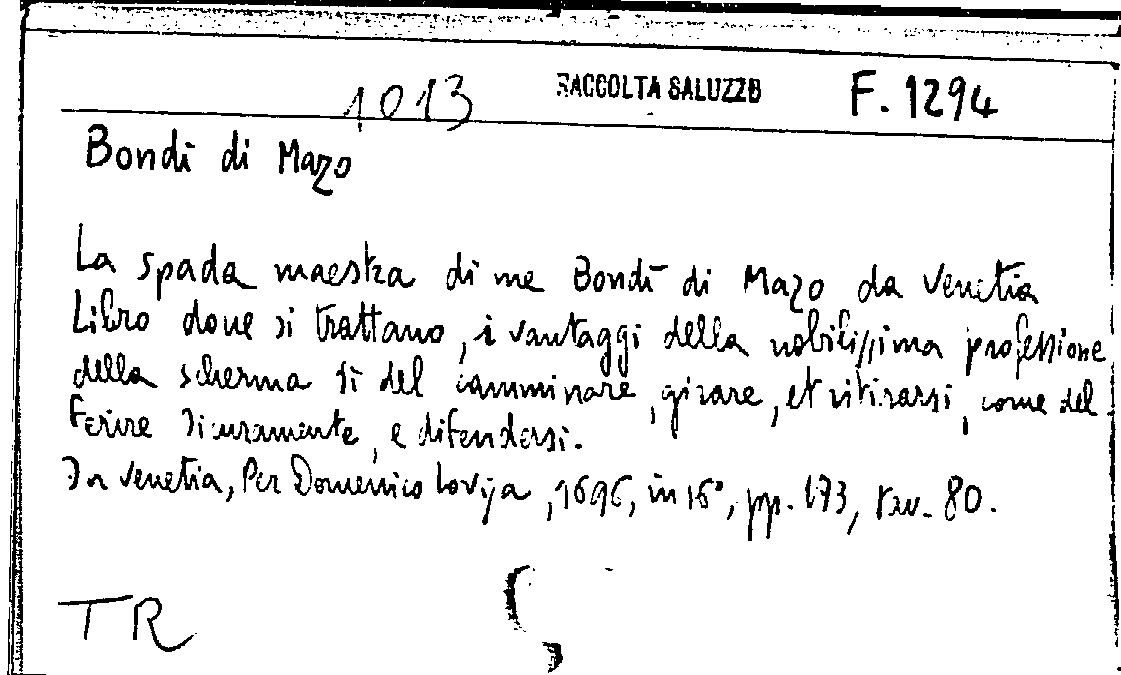 1013 RACCOLTA SALUZZO F. 1294
Bondì di Mazo
La spada maestra di me Bondì di Mazo da Venetia
Libro doue si trattano, i vantaggi della nobilissima professione
della scherma sì del camminare, girare, et ritirarsi, come del
ferire sicuramente, e difendersi.
In Venetia, Per Domenico Lovisa, 1696, in 16°, pp. 173, tav. 80.
TR